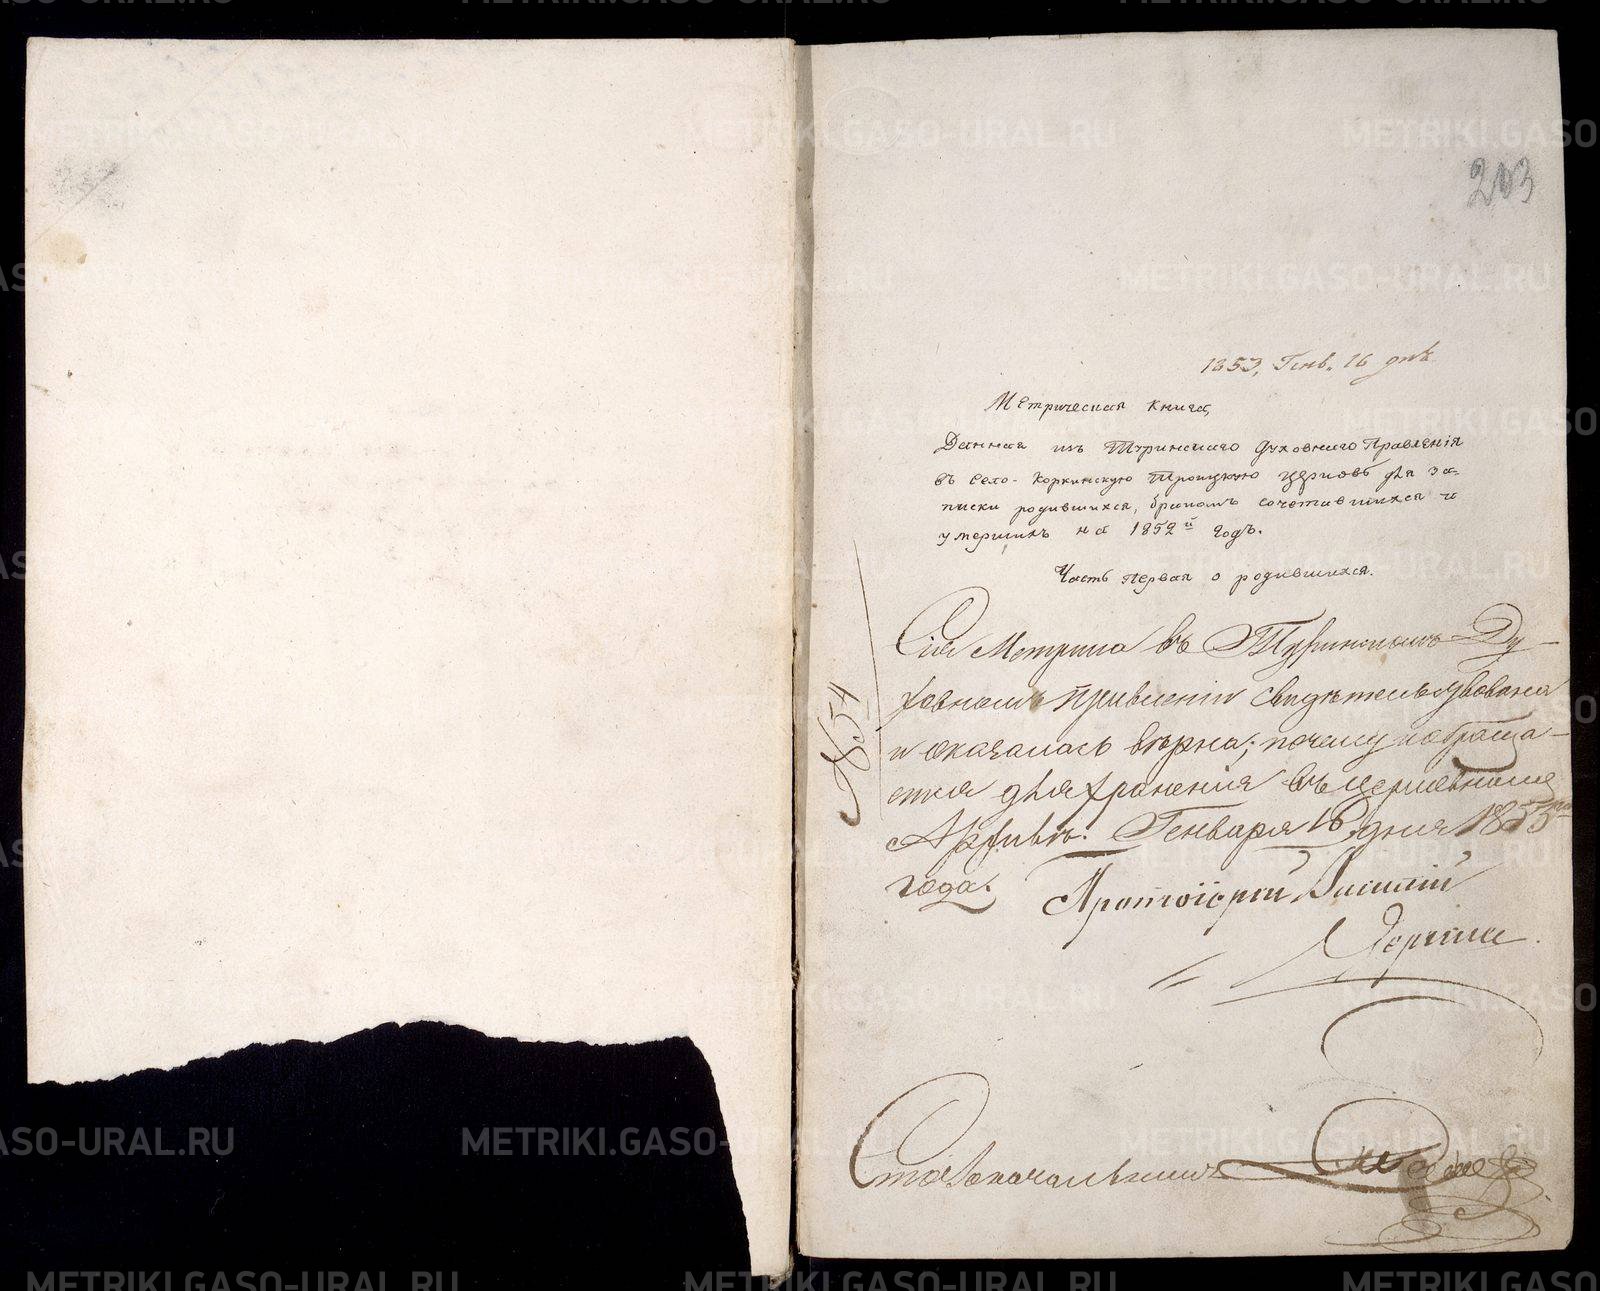 203
1853, Генв. 16 дня
Метрическая книга,
Данная изъ Туринскаго Духовнаго Правленія
въ Село-Коркинскую Троицкую церковь для за-
писки родившихся, бракомъ сочетавшихся и
умершихъ на 1852й годъ.
Часть первая о родившихся.
Сія Метрика въ Туринскомъ Ду-
ховномъ Правленіи свидѣтельствована
и оказалась вѣрна; почему и обраща-
ется для храненія въ церковномъ
Архивѣ. Генваря 16 дня 1853го
года. Протоіерей Василій
№ 54
Столоначальникъ
METRIKI.GASO-URAL.RU